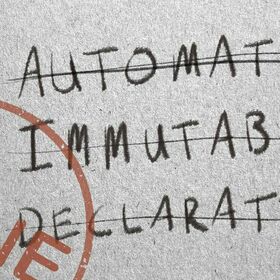 AUTOMAT
IMMUTAB
DECLARAT